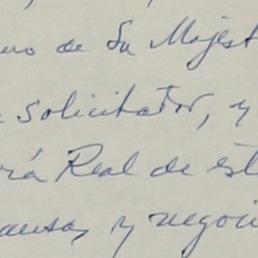 no de Su Majest
solicitator, y
rá Real de est
ausa, y negoci